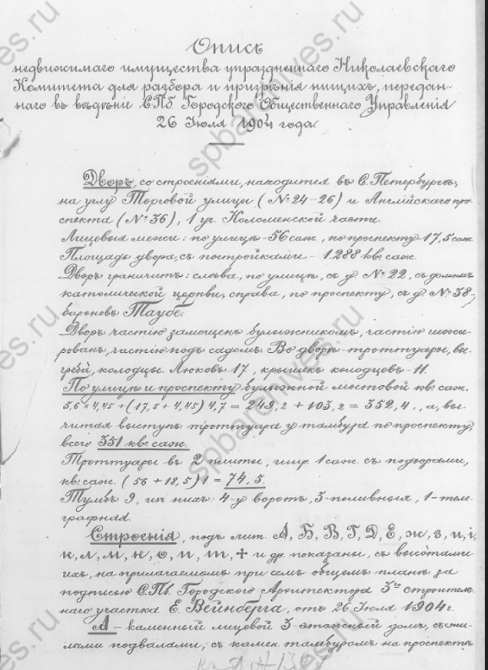 Опись
недвижимаго имущества упраздненнаго Николаевскаго
Комитета для разбора и призрѣнія нищихъ, передан-
наго въ вѣдѣніе СПб Городского Общественнаго Управленія
26 Іюля 1904 года.
Дворъ, со строеніями, находится въ С. Петербургѣ,
на углу Торговой улицы (№ 24-26) и Англійскаго про-
спекта (№ 36), 1 уч. Коломенской части.
Лицевыя межи: по улицѣ - 56 саж., по проспекту 17,5 саж
Площадь двора, съ постройками - 1288 кв. саж.
Дворъ граничитъ: слѣва, по улицѣ, съ д. № 22, съ домомъ
католической церкви, справа, по проспекту, съ д. № 38-
бароновъ Таубе.
Дворъ частію замощенъ булыжникомъ, частію
частію подъ садомъ. Во дворѣ - троттуары, вы-
гребъ, колодцы. Люковъ 17, крышекъ колодцевъ - 11.
По улицѣ и проспекту булыжной мостовой кв. саж.
5,6 × 4,45 + (17,5 + 4,45) 4,7 = 249,2 + 103,2 = 352,4, а, вы-
читая выступъ троттуара у тамбура по проспекту
всего 351 кв. саж.
Троттуары въ 2 плиты, шир. 1 саж. съ подзорами,
кв. саж. (56 + 18,5) 1 = 74,5.
Тумбъ 9, изъ нихъ: 4 у воротъ, 3-поливныхъ, 1-теле
графная.
Строенія, подъ лит. А, Б, В, Г, Д, Е, ж, з, и, і,
к, л, м, н, о, п, т, и др. показаны, съ высотами
ихъ, на прилагаемомъ при семъ общемъ планѣ за
подписью С.Пб. Городского Архитектора 3го строитель-
наго участка Е. Вейнберга, отъ 26 Іюля 1904 г.
А - каменный лицевой 3-этажный домъ, съ жи-
лыми подвалами; съ камен. тамбуромъ на проспектъ
spbarchives.ru